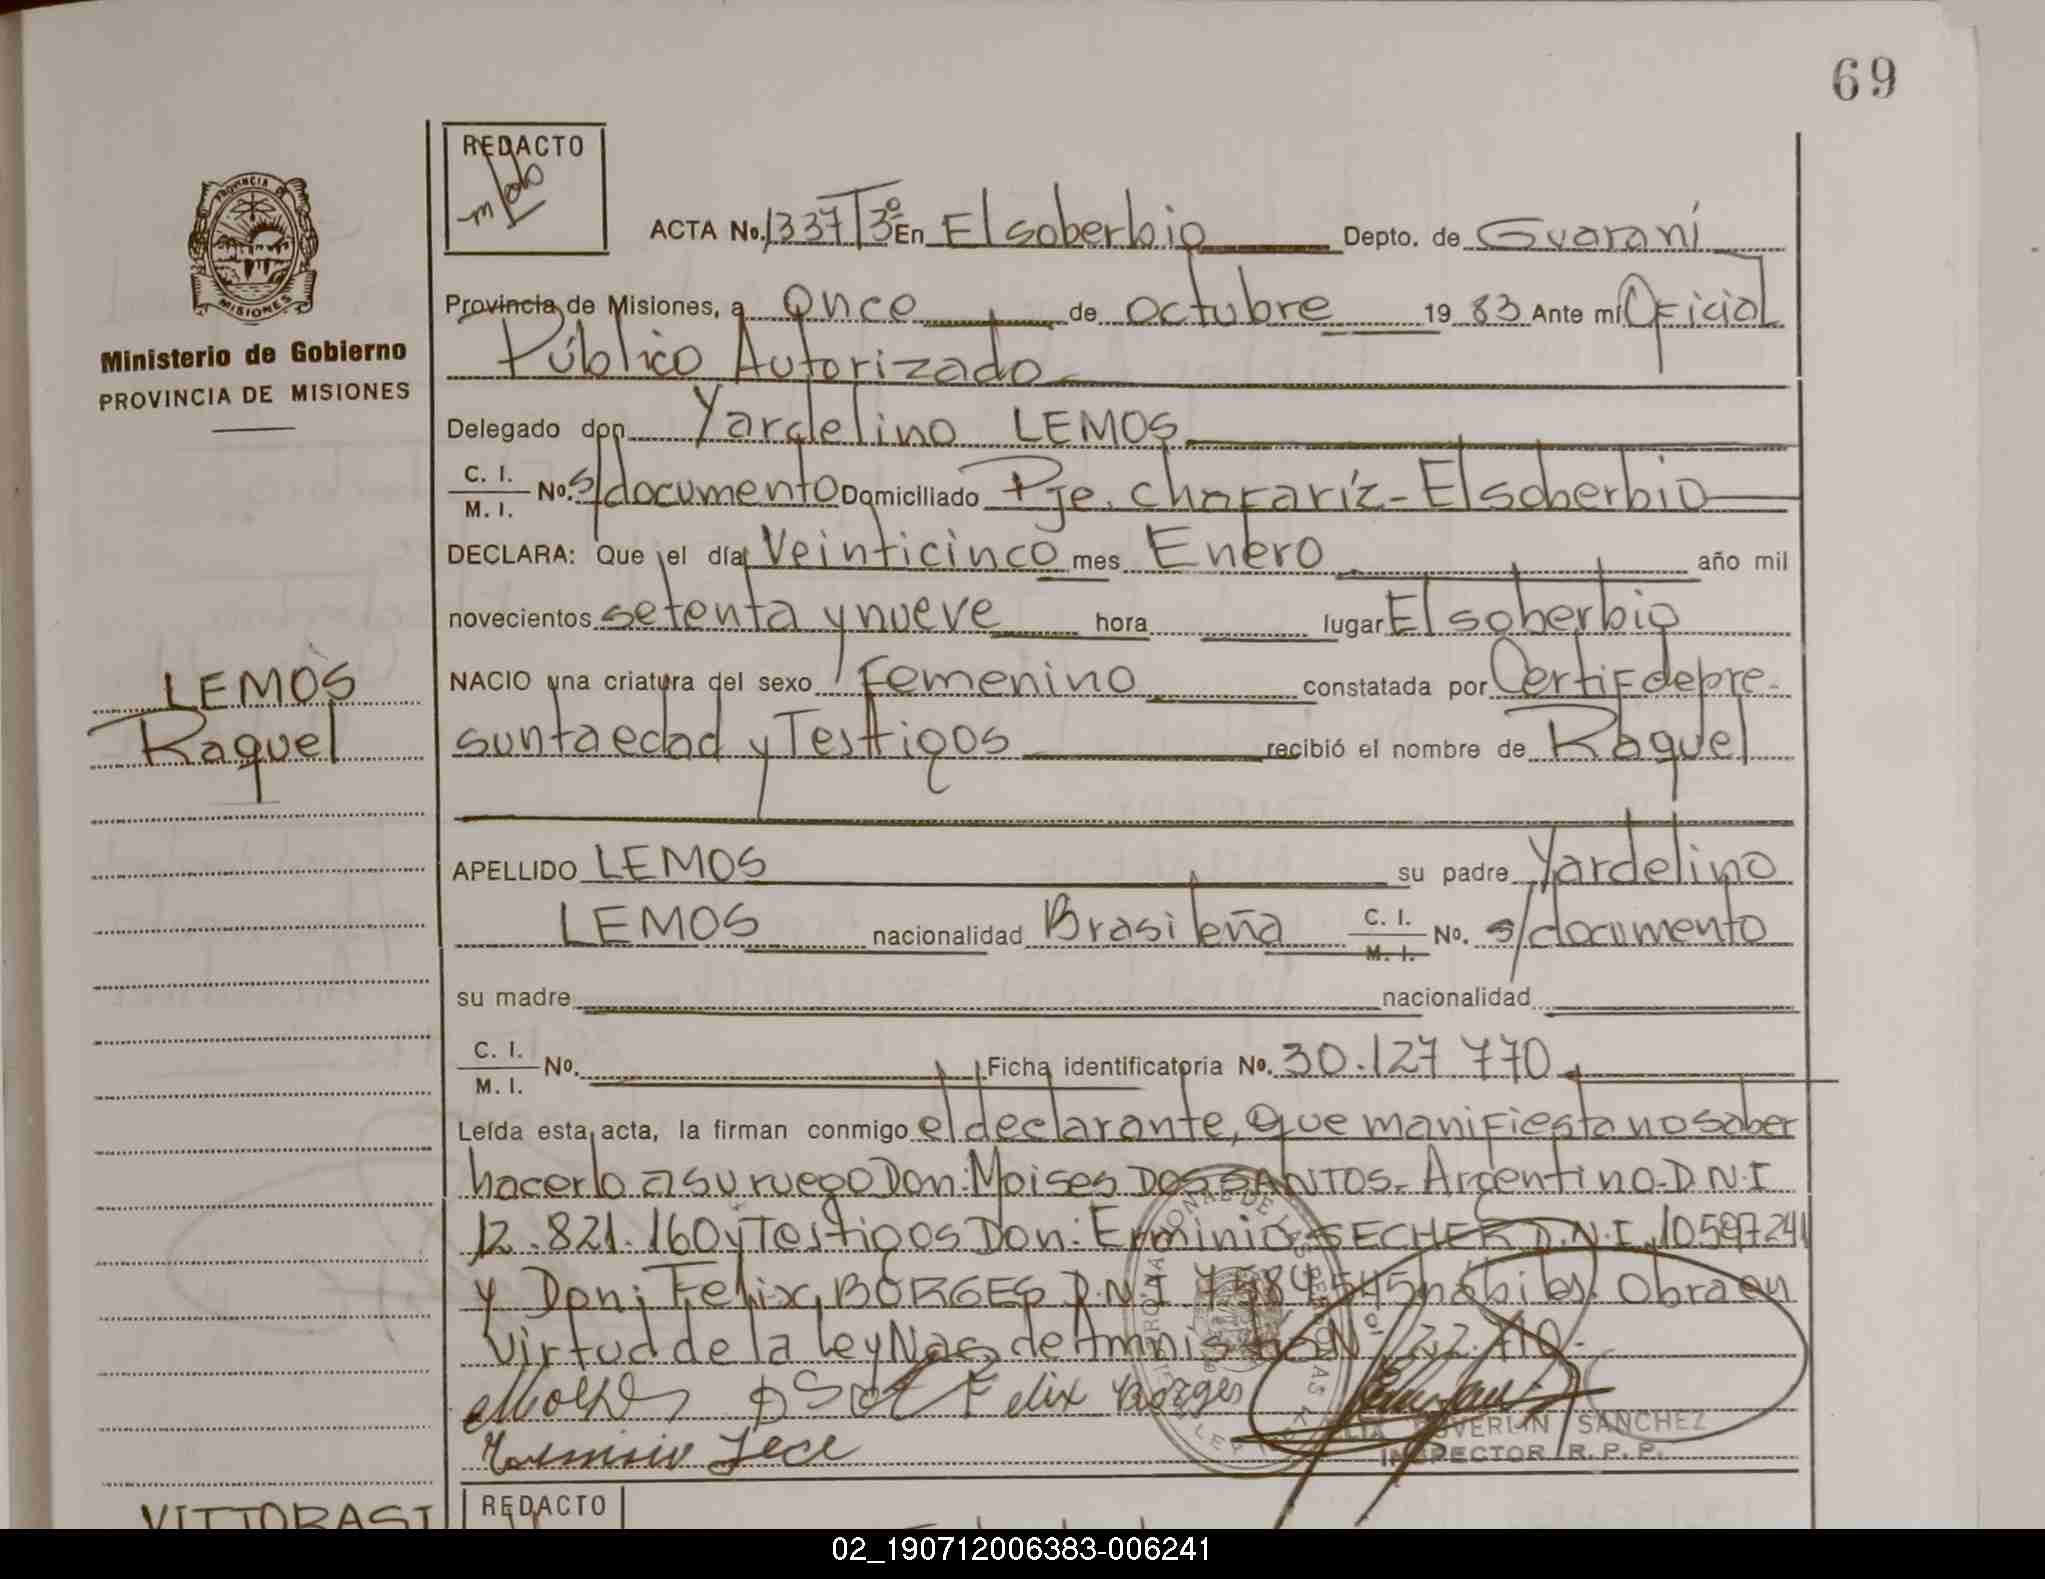 69
REDACTO
ACTA No. 1337 T3º En El soberbio Depto. de Guaraní
Provincia de Misiones, a once de octubre 19 83 Ante mí Oficial
Público Autorizado
Delegado don Yardelino LEMOS
C. I. / M. I. No. s/documento Domiciliado Pje. chafaríz - El soberbio
DECLARA: Que el día Veinticinco mes Enero año mil
novecientos setenta y nueve hora lugar El soberbio
NACIO una criatura del sexo Femenino constatada por Certif de pre-
sunta edad y Testigos recibió el nombre de Raquel
APELLIDO LEMOS su padre Yardelino
LEMOS nacionalidad Brasileña C. I. / M. I. No. s/documento
su madre nacionalidad
C. I. / M. I. No. Ficha identificatoria No. 30.127.770
Leída esta acta, la firman conmigo el declarante, que manifiesta no saber
hacerlo a su ruego Don: Moises DOS SANTOS. Argentino D.N.I
12.821.160 y Testigos Don: Erminio SECHER D.N.I. 10597241
y Don: Felix BORGES D.N.I 7584545 hábiles. Obra en
virtud de la ley Nac de Amnis Nº 22.410.-
Felix Borges
SANCHEZ
INSPECTOR R.P.P.
PROVINCIA DE MISIONES
Ministerio de Gobierno
PROVINCIA DE MISIONES
LEMOS
Raquel
VITTORASI
REDACTO
02_190712006383-006241